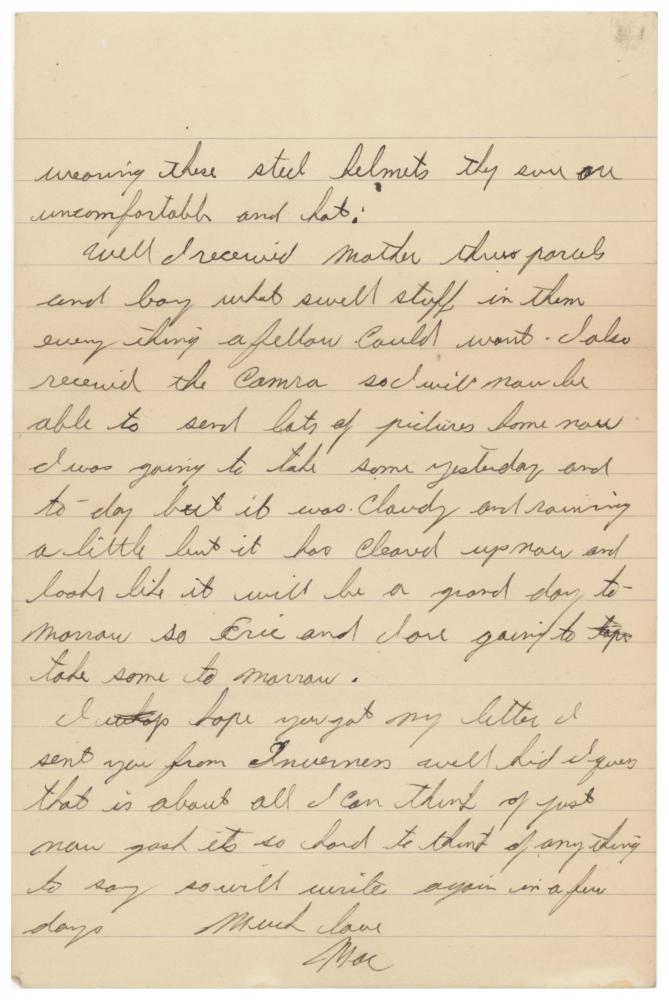 wearing these steel helmets thy sure are
uncomfortabl and hot.
Well I received Mother three parcels
and boy what swell stuff in them
every thing a fellow Could want. I also
receivid the Camra so I will now be
able to send lots of pictures home now
I was going to take some yesterday and
to-day but it was Cloudy and raining
a little but it has Cleared up now and
looks like it will be a grand day to-
morrow so Eric and I are going to
take some to morrow.
I hope you got my letter I
sent you from Inverness well kid I guess
that is about all I Can think of just
now gosh its so hard to think of any thing
to say so will write again in a few
days Much love
Mac